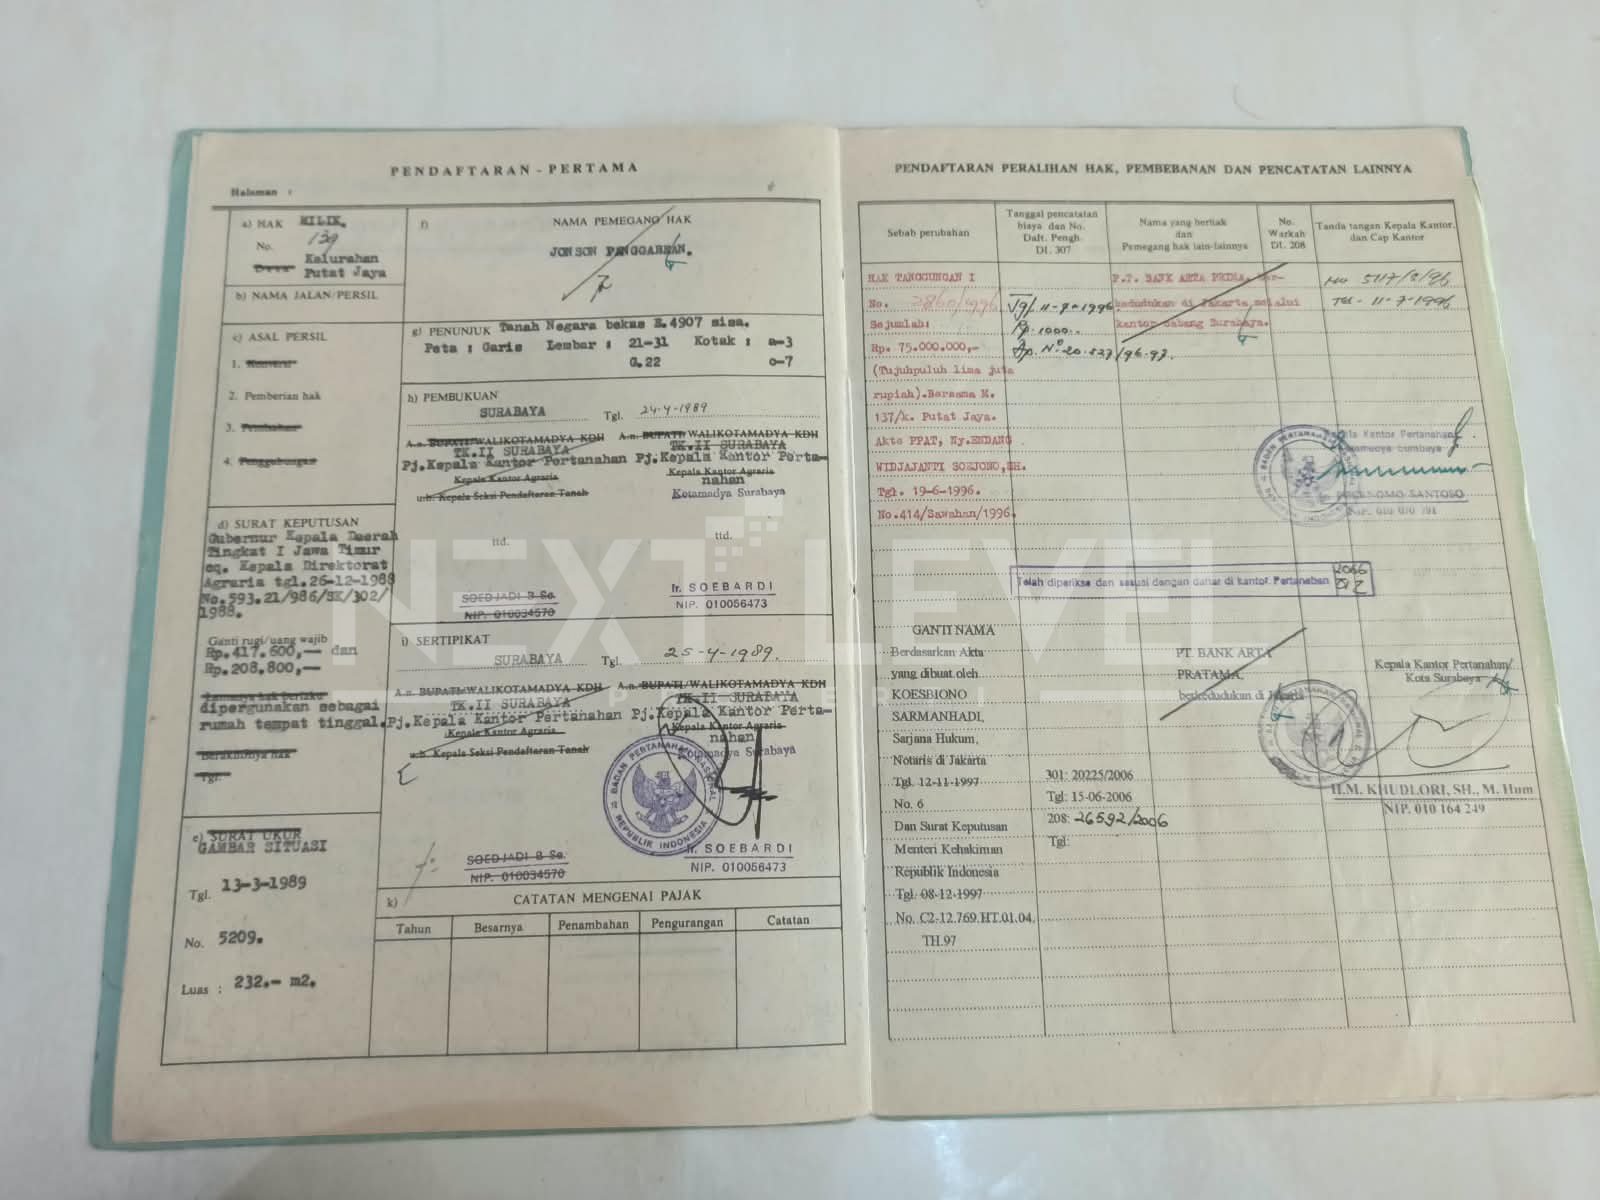 PENDAFTARAN - PERTAMA
Halaman :
a) HAK MILIK.
No. 139
Desa Kelurahan
Putat Jaya
b) NAMA JALAN/PERSIL
c) ASAL PERSIL
1. Konversi
2. Pemberian hak
3. Pemisahan
4. Penggabungan
d) SURAT KEPUTUSAN
Gubernur Kepala Daerah
Tingkat I Jawa Timur
cq. Kepala Direktorat
Agraria tgl.26-12-1988
No.593.21/986/SK/302/
1988.
Ganti rugi/uang wajib
Rp.417.600,— dan
Rp.208.800,—
Lamanya hak berlaku
dipergunakan sebagai
rumah tempat tinggal.
Berakhirnya hak
Tgl.
e) SURAT UKUR
GAMBAR SITUASI
Tgl. 13-3-1989
No. 5209.
Luas : 232.- m2.
f) NAMA PEMEGANG HAK
JONSON PANGGABEAN.
g) PENUNJUK Tanah Negara bekas E.4907 sisa.
Peta : Garis Lembar : 21-31 Kotak : a-3
G.22 o-7
h) PEMBUKUAN
SURABAYA Tgl. 24-4-1989
A.n. BUPATI/WALIKOTAMADYA KDH A.n. BUPATI/WALIKOTAMADYA KDH
TK.II SURABAYA TK.II SURABAYA
Pj.Kepala Kantor Pertanahan Pj.Kepala Kantor Perta-
Kepala Kantor Agraria Kepala Kantor Agraria
nahan
u.b. Kepala Seksi Pendaftaran Tanah Kotamadya Surabaya
ttd. ttd.
SOEDJADI B Sc. Ir. SOEBARDI
NIP. 010034570 NIP. 010056473
i) SERTIPIKAT
SURABAYA Tgl. 25-4-1989.
A.n. BUPATI/WALIKOTAMADYA KDH A.n. BUPATI/WALIKOTAMADYA KDH
TK.II SURABAYA TK.II SURABAYA
Pj.Kepala Kantor Pertanahan Pj.Kepala Kantor Perta-
Kepala Kantor Agraria Kepala Kantor Agraria
nahan
u.b. Kepala Seksi Pendaftaran Tanah Kotamadya Surabaya
BADAN PERTANAHAN NASIONAL
REPUBLIK INDONESIA
SOEDJADI B Sc. Ir. SOEBARDI
NIP. 010034570 NIP. 010056473
k) CATATAN MENGENAI PAJAK
Tahun Besarnya Penambahan Pengurangan Catatan
PENDAFTARAN PERALIHAN HAK, PEMBEBANAN DAN PENCATATAN LAINNYA
Sebab perubahan
Tanggal pencatatan
biaya dan No.
Daft. Pengh.
DI. 307
Nama yang berhak
dan
Pemegang hak lain-lainnya
No.
Warkah
DI. 208
Tanda tangan Kepala Kantor.
dan Cap Kantor
HAK TANGGUNGAN I
No. 3860/1996
Sejumlah:
Rp. 75.000.000,-
(Tujuhpuluh lima juta
rupiah).Bersama M.
137/k. Putat Jaya.
Akte PPAT, Ny.ENDANG
WIDJAJANTI SOEJONO,SH.
Tgl. 19-6-1996.
No.414/Sawahan/1996.
11-7-1996.
Rp. 1000..
P.T. BANK ARTA PRIMA, ber-
kedudukan di Jakarta,melalui
kantor cabang Surabaya.
5117/8/96
Tgl. 11-7-1996
Kepala Kantor Pertanahan
Kotamadya Surabaya
POERNOMO SANTOSO
NIP. 010 070 791
Telah diperiksa dan sesuai dengan daftar di kantor. Pertanahan
GANTI NAMA
Berdasarkan Akta
yang dibuat oleh
KOESBIONO
SARMANHADI,
Sarjana Hukum,
Notaris di Jakarta
Tgl. 12-11-1997
No. 6
Dan Surat Keputusan
Menteri Kehakiman
Republik Indonesia
Tgl. 08-12-1997
No. C2-12.769.HT.01.04.
TH.97
301: 20225/2006
Tgl: 15-06-2006
208: 26592/2006
Tgl:
PT. BANK ARTA
PRATAMA,
berkedudukan di Jakarta
Kepala Kantor Pertanahan
Kota Surabaya
H.M. KHUDLORI, SH., M. Hum
NIP. 010 164 249
NEXT LEVEL
PROPERTY